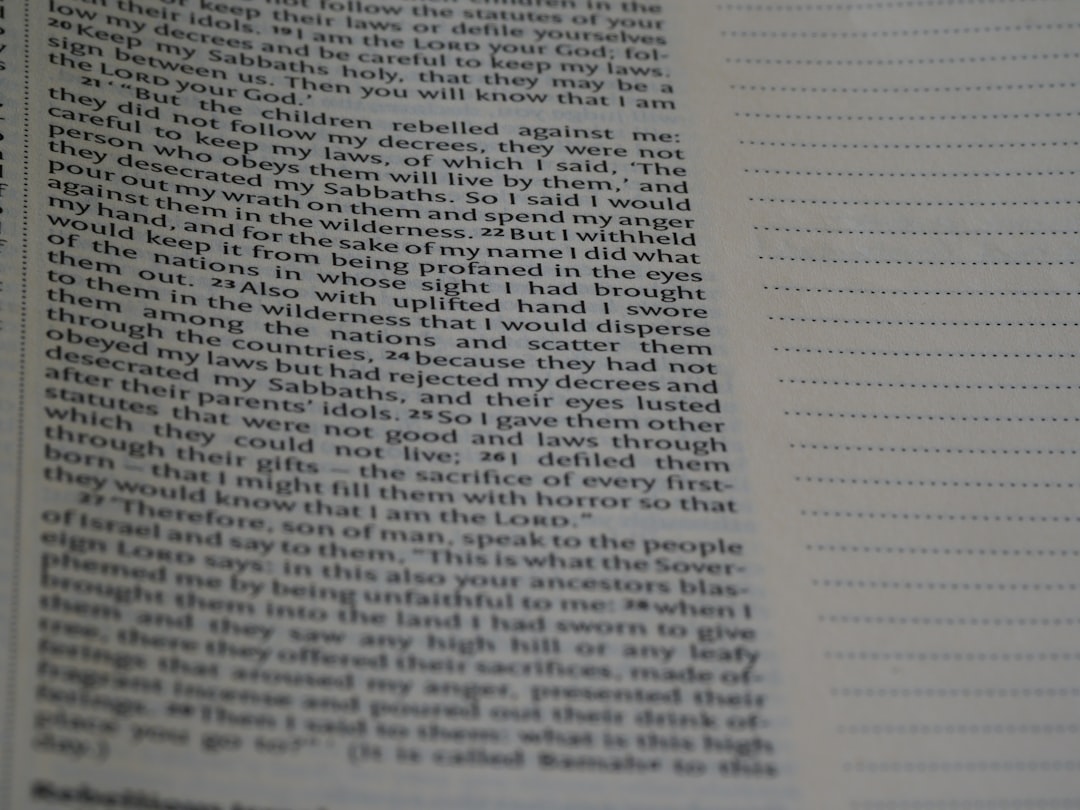 follow the statutes of your
or keep their laws or defile yourselves
with their idols. 19 I am the LORD your God; fol-
low my decrees and be careful to keep my laws.
20 Keep my Sabbaths holy, that they may be a
sign between us. Then you will know that I am
the LORD your God.’
21 ‘ “But the children rebelled against me:
they did not follow my decrees, they were not
careful to keep my laws, of which I said, ‘The
person who obeys them will live by them,’ and
they desecrated my Sabbaths. So I said I would
pour out my wrath on them and spend my anger
against them in the wilderness. 22 But I withheld
my hand, and for the sake of my name I did what
would keep it from being profaned in the eyes
of the nations in whose sight I had brought
them out. 23 Also with uplifted hand I swore
to them in the wilderness that I would disperse
them among the nations and scatter them
through the countries, 24 because they had not
obeyed my laws but had rejected my decrees and
desecrated my Sabbaths, and their eyes lusted
after their parents’ idols. 25 So I gave them other
statutes that were not good and laws through
which they could not live; 26 I defiled them
through their gifts – the sacrifice of every first-
born – that I might fill them with horror so that
they would know that I am the LORD.”
27 ‘Therefore, son of man, speak to the people
of Israel and say to them, “This is what the Sover-
eign LORD says: in this also your ancestors blas-
phemed me by being unfaithful to me: 28 when I
brought them into the land I had sworn to give
them and they saw any high hill or any leafy
tree, there they offered their sacrifices, made of-
ferings that aroused my anger, presented their
fragrant incense and poured out their drink of-
ferings. 29 Then I said to them: what is this high
place you go to?” ’ (It is called Bamah to this
day.)